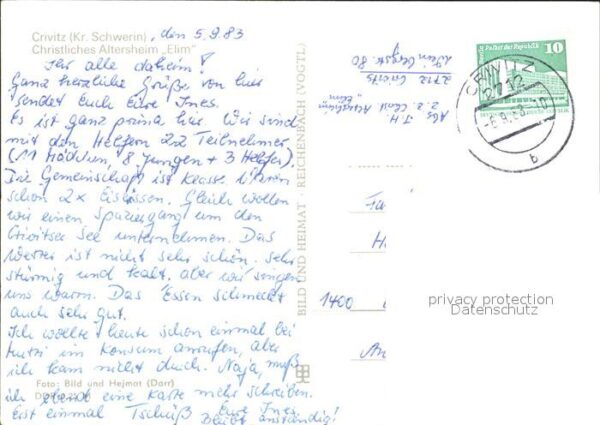 Crivitz (Kr. Schwerin), den 5.9.83
Christliches Altersheim „Elim"
Ihr alle daheim!
Ganz herzliche Grüße von hier
sendet Euch Eure Ines.
Es ist ganz prima hier. Wir sind
mit den Helfern 22 Teilnehmer
(11 Mädchen, 8 Jungen + 3 Helfer).
Die Gemeinschaft ist klasse. Waren
schon 2x Eisessen. Gleich wollen
wir einen Spaziergang um den
Crivitzer See unternehmen. Das
Wetter ist nicht sehr schön. Sehr
stürmig und kalt, aber wir singen
uns warm. Das Essen schmeckt
auch sehr gut.
Ich wollte heute schon einmal bei
Mutti im Konsum anrufen, aber
ich kam nicht durch. Naja, muß
Foto: Bild und Heimat (Darr)
ich ebend eine Karte mehr schreiben.
Erst einmal Tschüß Eure Ines
Bleibt anständig!
BILD UND HEIMAT · REICHENBACH (VOGTL)
Abs. J. H.
z. Z. Christ. Altersheim
„Elim"
2712 Crivitz
80
Palast der Republik
10
DDR
CRIVITZ
2712
-6.9.83-10
b
Fa
H
1400
An
privacy protection
Datenschutz